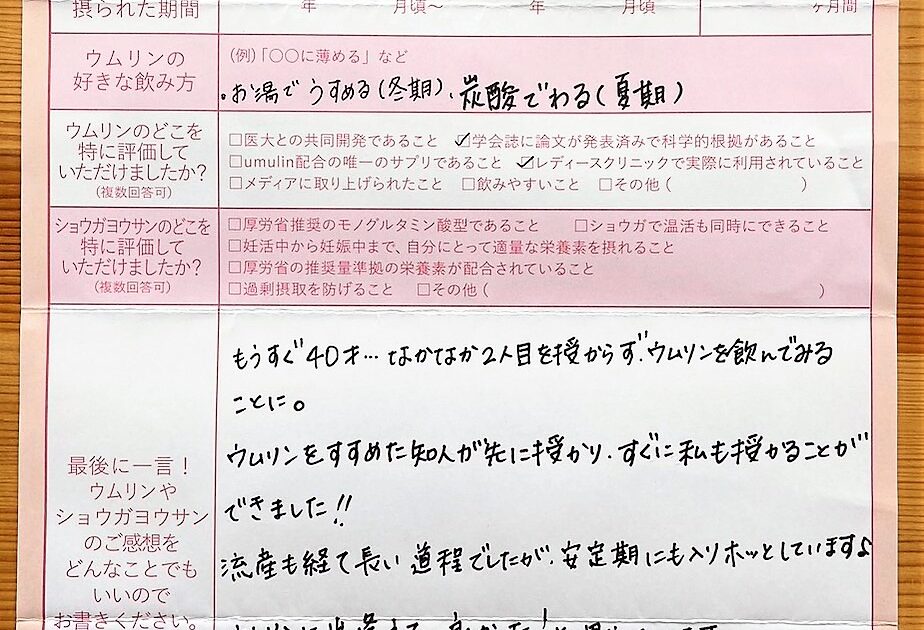 摂られた期間 年 月頃〜 年 月頃 ヶ月間
ウムリンの
好きな飲み方
(例)「〇〇に薄める」など
・お湯で うすめる(冬期)、炭酸でわる(夏期)
ウムリンのどこを
特に評価して
いただけましたか?
(複数回答可)
□医大との共同開発であること ☑学会誌に論文が発表済みで科学的根拠があること
□umulin配合の唯一のサプリであること ☑レディースクリニックで実際に利用されていること
□メディアに取り上げられたこと □飲みやすいこと □その他( )
ショウガヨウサンのどこを
特に評価して
いただけましたか?
(複数回答可)
□厚労省推奨のモノグルタミン酸型であること □ショウガで温活も同時にできること
□妊活中から妊娠中まで、自分にとって適量な栄養素を摂れること
□厚労省の推奨量準拠の栄養素が配合されていること
□過剰摂取を防げること □その他( )
最後に一言!
ウムリンや
ショウガヨウサン
のご感想を
どんなことでも
いいので
お書きください。
もうすぐ40才…なかなか2人目を授からず、ウムリンを飲んでみる
ことに。
ウムリンをすすめた知人が先に授かり、すぐに私も授かることが
できました!!
流産も経て長い道程でしたが、安定期にも入りホッとしています♪